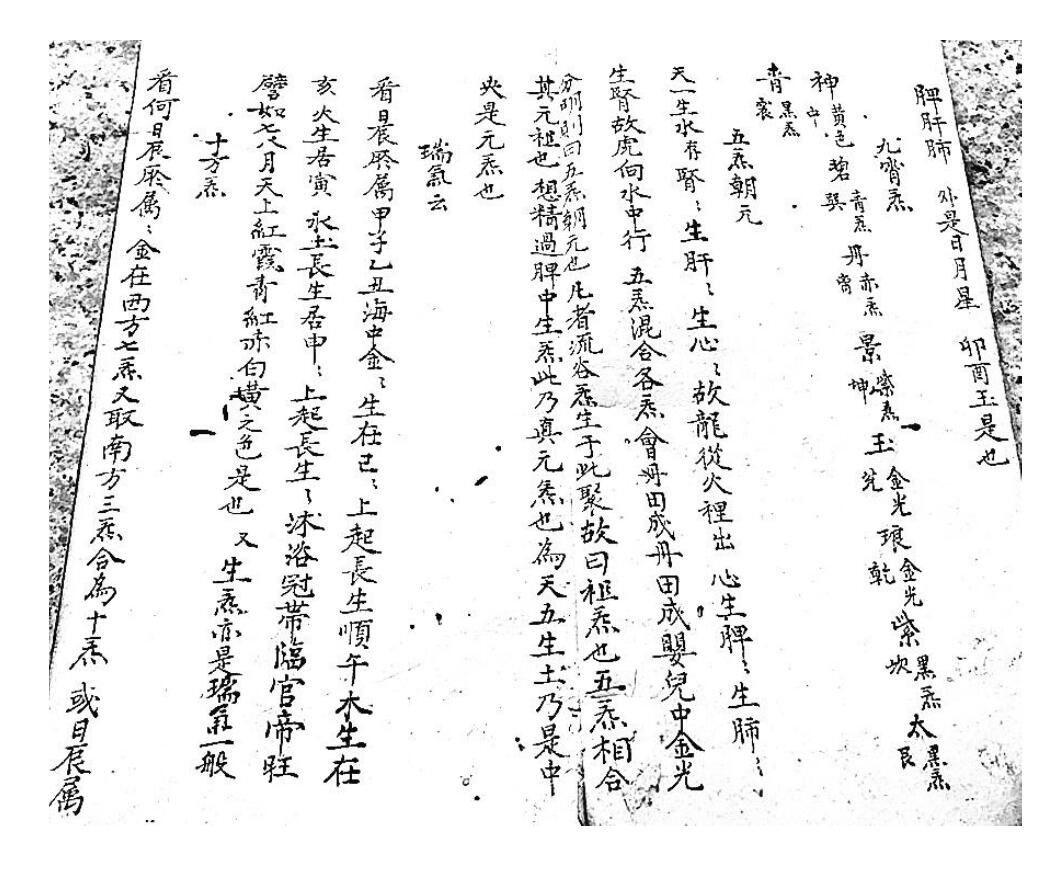 脾肝肺 外是日月星 卯酉玉是也
九霄炁
神 黄色 中 碧 青炁 巽 丹 赤炁 离 景 紫炁 坤 玉 金光 兊 琅 金光 乾 紫 黑炁 坎 太 黑炁 艮
青 黑炁 震
五炁朝元
天一生水在腎〻生肝〻生心〻故龍從火裡出 心生脾〻生肺〻
生腎故虎向水中行 五炁混合各炁會丹田成丹田成嬰兒中金光
分明則曰五炁朝元也 凡者流谷炁生于此聚故曰祖炁也五炁相合
其元祖也 想精過脾中生炁此乃真元炁也為天五生土乃是中
央是元炁也
瑞氣云
看日辰所属甲子乙丑海中金〻生在巳〻上起長生順午木生在
亥火生居寅 水土長生居申〻上起長生〻沐浴冠帶臨官帝旺
譬如七八月天上紅霞青紅赤白黄之色是也 又生炁亦是瑞氣一般
十方炁
看何日辰所属〻金在西方七炁又取南方三炁合為十炁 或日辰属